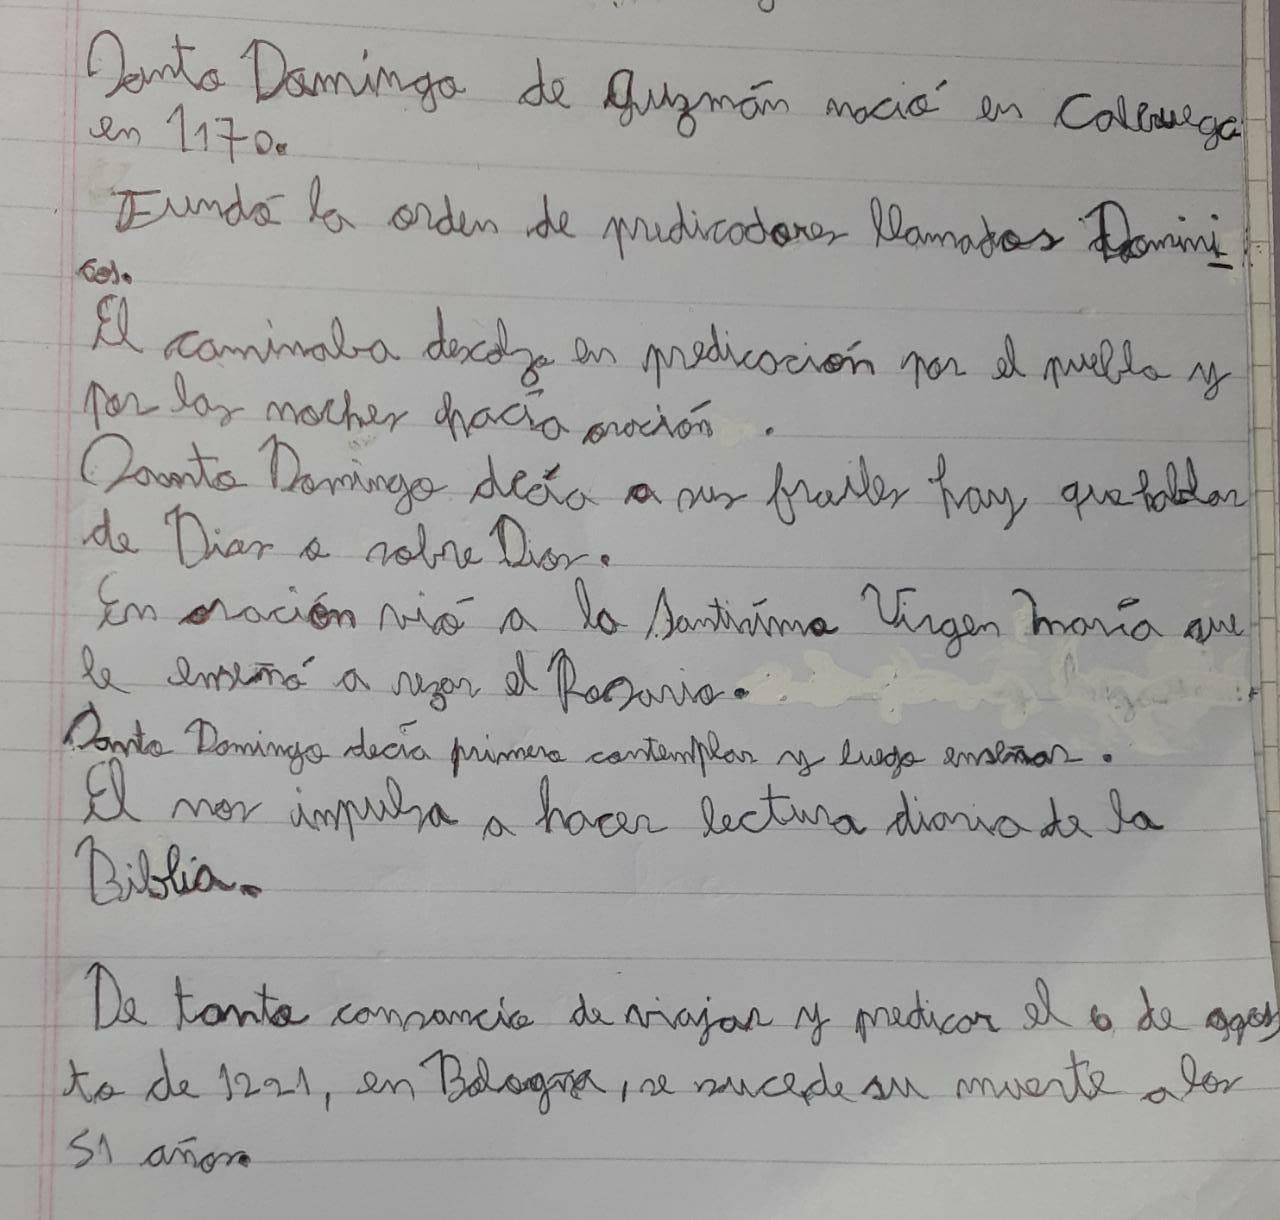 Santo Domingo de Guzmán nació en Caleruega
en 1170.
Fundó la orden de predicadores llamados Domini
cos.
El caminaba descalzo en predicación por el pueblo y
por las noches hacía oración.
Santo Domingo decía a sus frailes hay que hablar
de Dios o sobre Dios.
En oración vió a la Santisíma Virgen María que
le enseñó a rezar el Rosario.
Santo Domingo decía primero contemplar y luego enseñar.
El nos impulsa a hacer lectura diaria de la
Biblia.
De tanto cansancio de viajar y predicar el 6 de agos
to de 1221, en Bologna, se sucede su muerte a los
51 años.